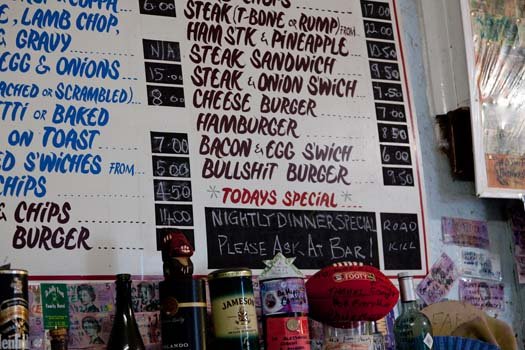 , LAMB CHOP,
& GRAVY N/A
EGG & ONIONS 15.00
ACHED OR SCRAMBLED) 8.0
TTI OR BAKED
ON TOAST 7.00
D S'WICHES FROM 5.00
CHIPS 4.50
& CHIPS 14.00
BURGER
6.00
STEAK (T-BONE OR RUMP) FROM 17.00
HAM STK & PINEAPPLE 22.00
STEAK SANDWICH 10.50
STEAK & ONION S'WICH 9.50
CHEESE BURGER 7.50
HAMBURGER 7.00
BACON & EGG S'WICH 8.50
BULLSHIT BURGER 6.00
9.50
TODAYS SPECIAL
NIGHTLY DINNER SPECIAL
PLEASE ASK AT BAR!
ROAD
KILL
JAMESON
FOOTY